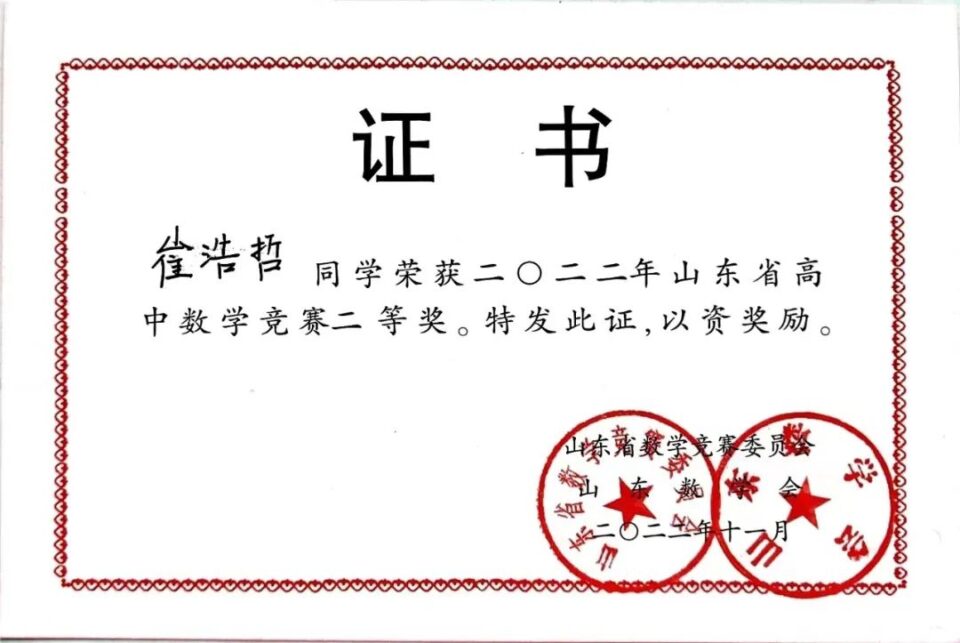 证 书
崔浩哲 同学荣获二〇二二年山东省高
中数学竞赛二等奖。特发此证,以资奖励。
山东省数学竞赛委员会
山东数学会
二〇二二年十一月
山东省数学竞赛委员会
山东数学会